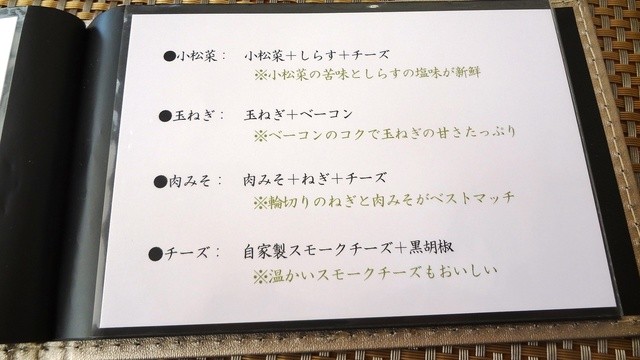 ●小松菜： 小松菜＋しらす＋チーズ
※小松菜の苦味としらすの塩味が新鮮
●玉ねぎ： 玉ねぎ＋ベーコン
※ベーコンのコクで玉ねぎの甘さたっぷり
●肉みそ： 肉みそ＋ねぎ＋チーズ
※輪切りのねぎと肉みそがベストマッチ
●チーズ： 自家製スモークチーズ＋黒胡椒
※温かいスモークチーズもおいしい